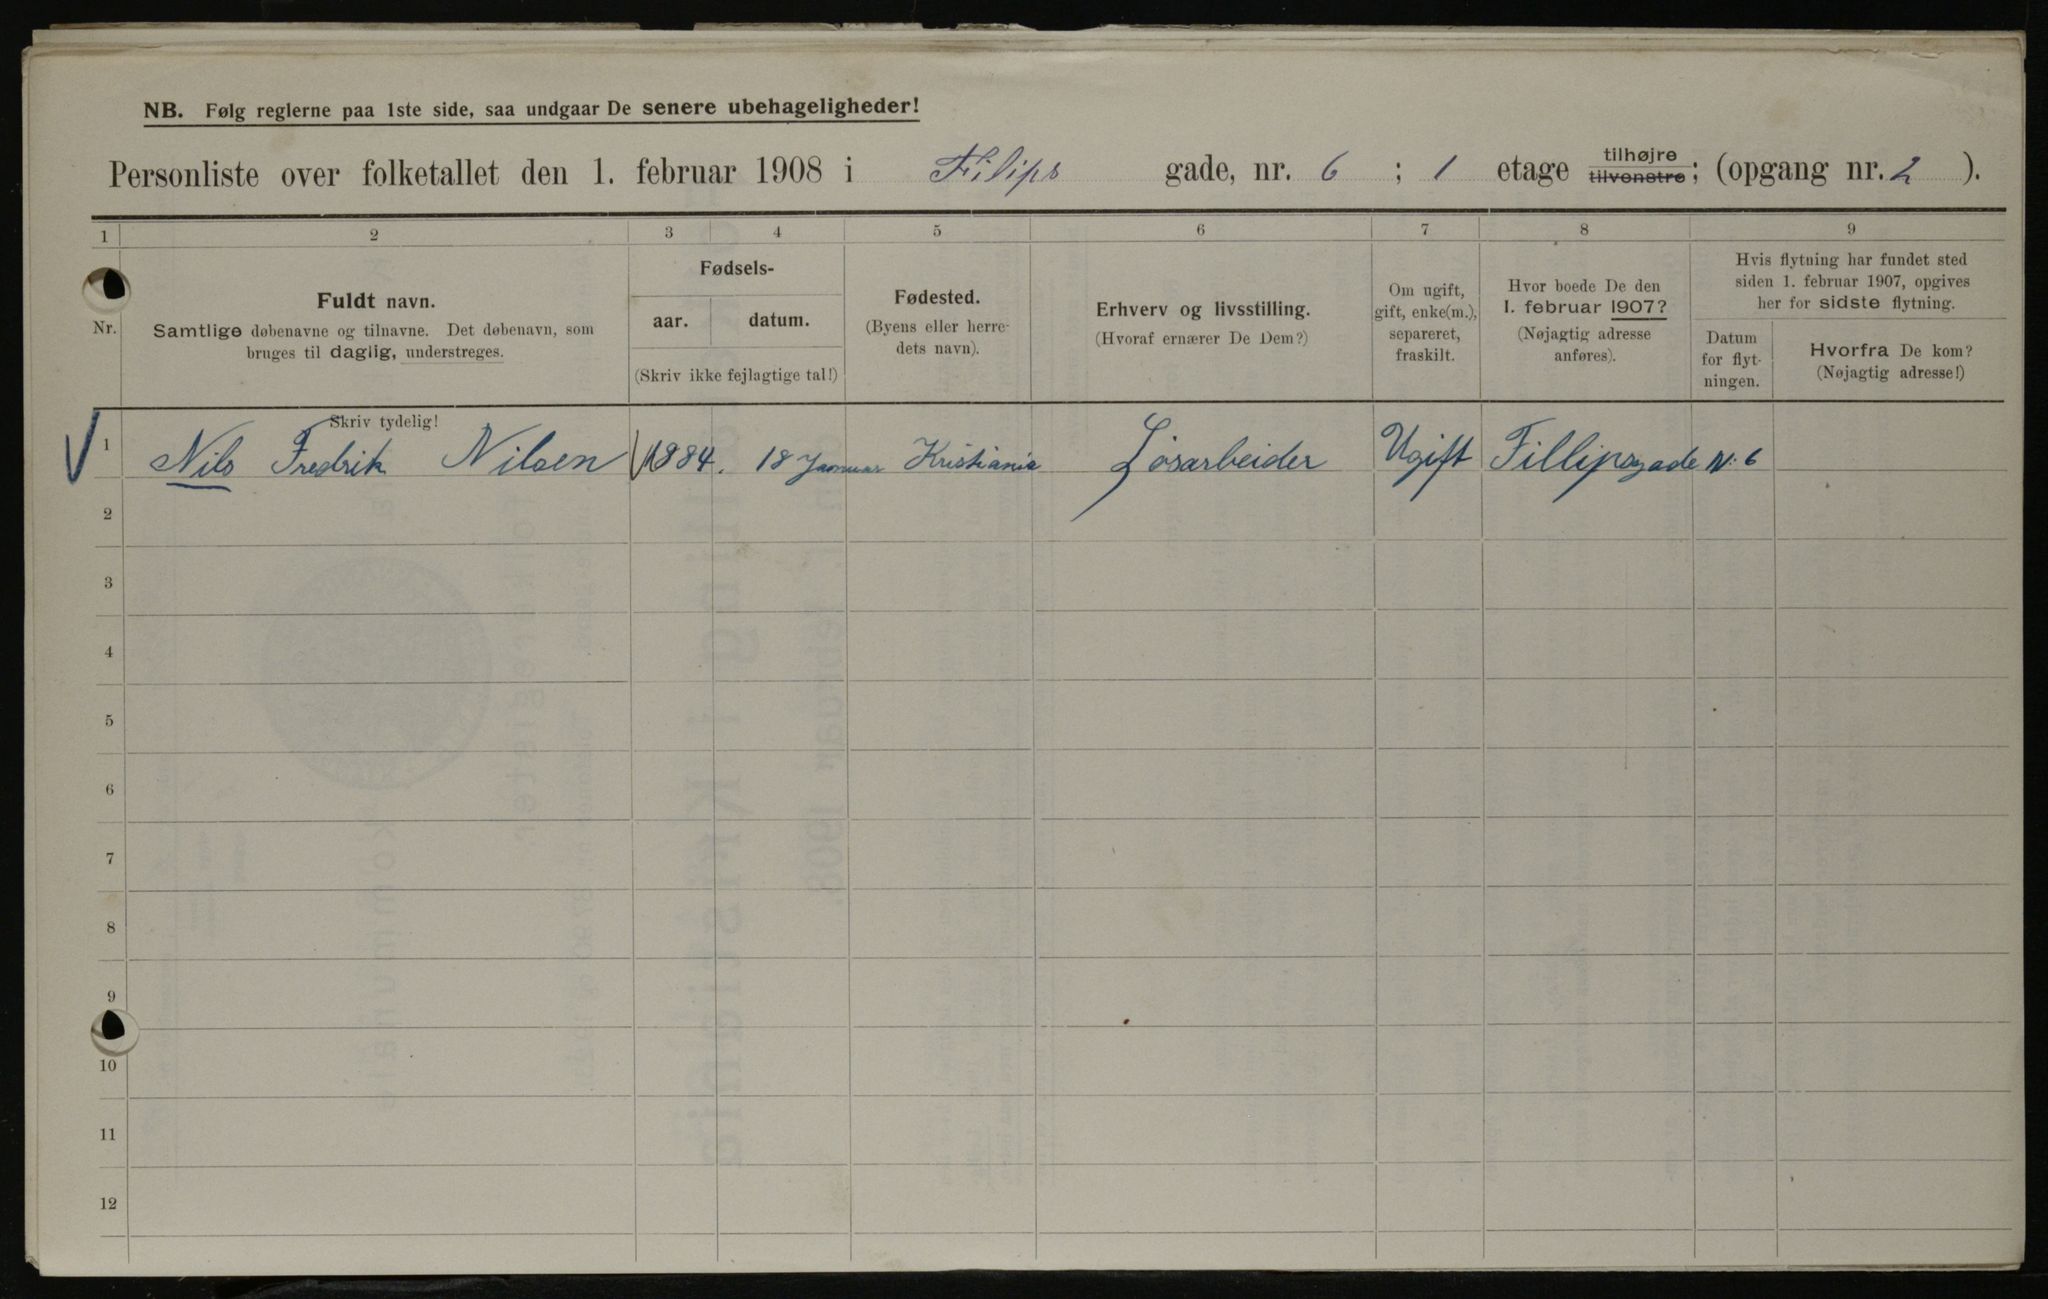 NB. Følg reglerne paa 1ste side, saa undgaar De senere ubehageligheder!
Personliste over folketallet den 1. februar 1908 i Filips gade, nr. 6 ; 1 etage tilhøjre tilvenstre; (opgang nr. 2 ).
1 2 3 4 5 6 7 8 9
Nr.
Fuldt navn.
Samtlige døbenavne og tilnavne. Det døbenavn, som
bruges til daglig, understreges.
Fødsels-
aar. datum.
(Skriv ikke fejlagtige tal!)
Fødested.
(Byens eller herre-
dets navn).
Erhverv og livsstilling.
(Hvoraf ernærer De Dem?)
Om ugift,
gift, enke(m.),
separeret,
fraskilt.
Hvor boede De den
1. februar 1907?
(Nøjagtig adresse
anføres).
Hvis flytning har fundet sted
siden 1. februar 1907, opgives
her for sidste flytning.
Datum
for flyt-
ningen.
Hvorfra De kom?
(Nøjagtig adresse!)
Skriv tydelig!
1 Nils Fredrik Nilsen 1884. 18 Januar Kristiania Løsarbeider Ugift Fillipsgade N: 6
2
3
4
5
6
7
8
9
10
11
12